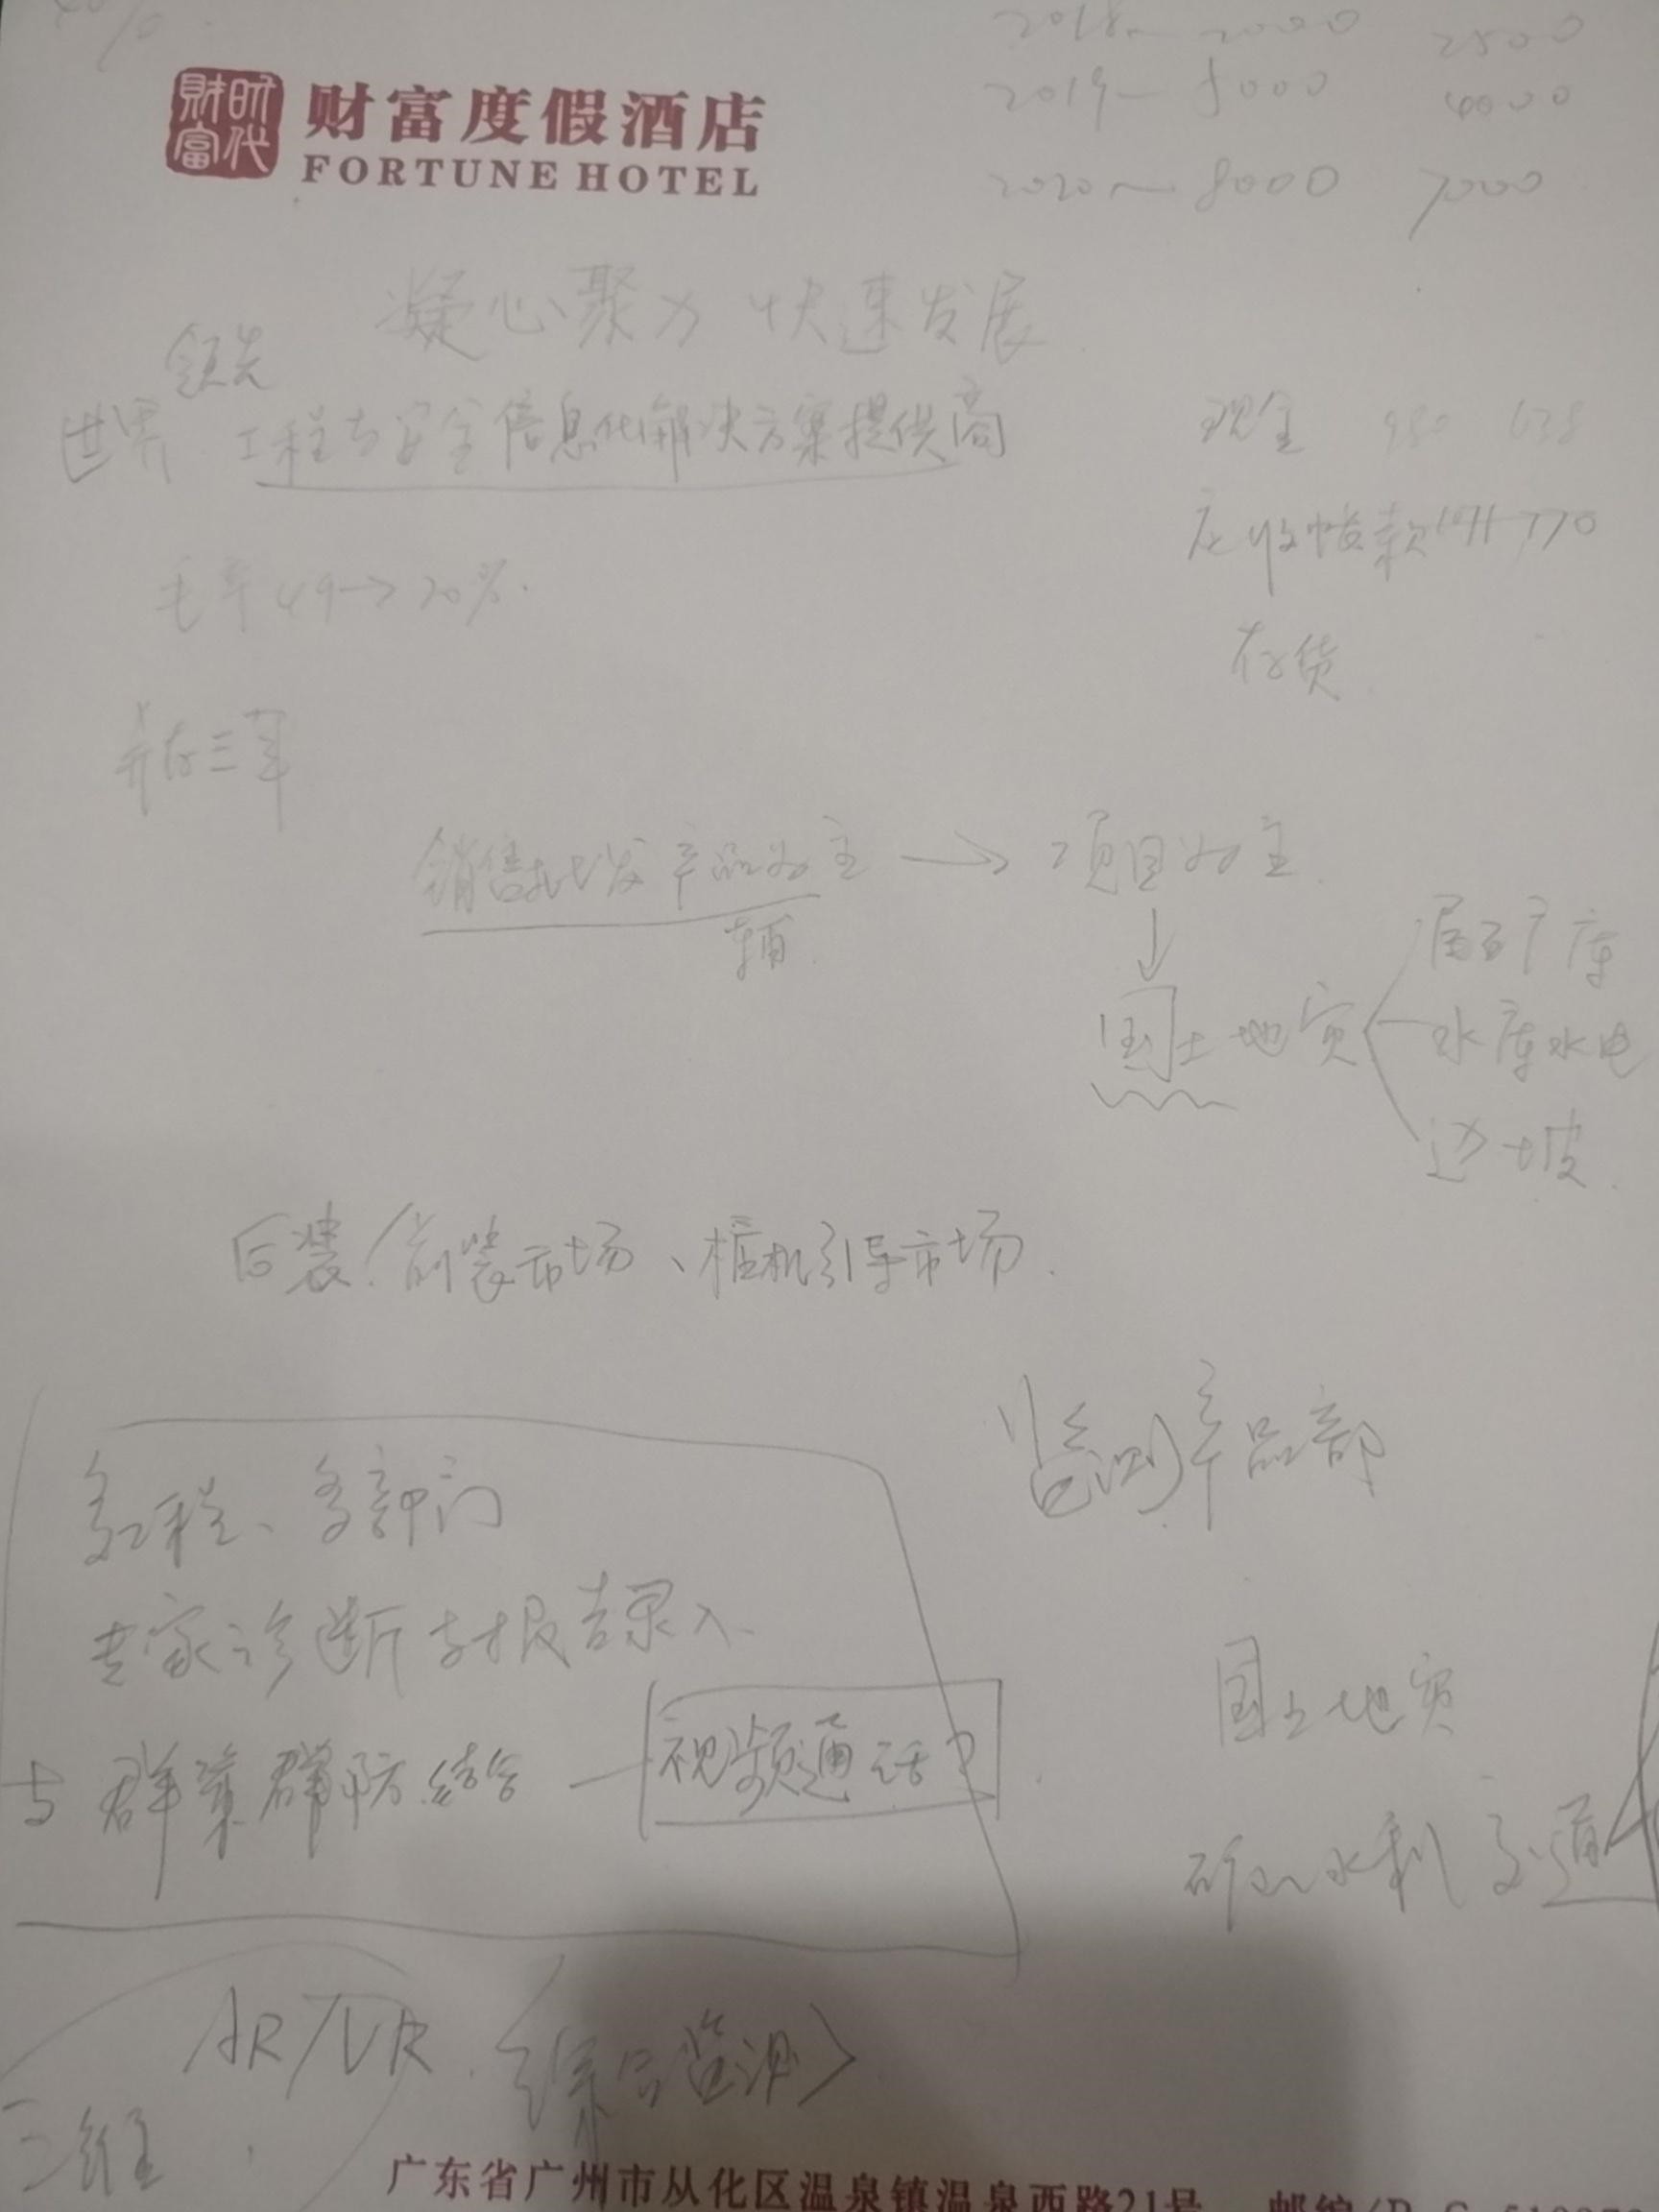 2018~ 2000 2500
财富时代 财富度假酒店
FORTUNE HOTEL
2019— 5000 4000
2020~ 8000 7000
凝心聚力 快速发展
领先
世界 工程与安全信息化解决方案提供商
现金 930 638
应收帐款 770
毛率49→20%.
存货
三年
销售批发产品为主 → 项目为主
辅
国土地质
尾矿库
水库水电
边坡
后装/前装市场、桩机引导市场.
监测产品部
多工程、多部门
专家诊断与报告录入
与群策群防结合 — 视频通话?
国土地质
矿山水利 交通
AR/VR. <综合监测>
三维
广东省广州市从化区温泉镇温泉西路21号 邮编(P.C